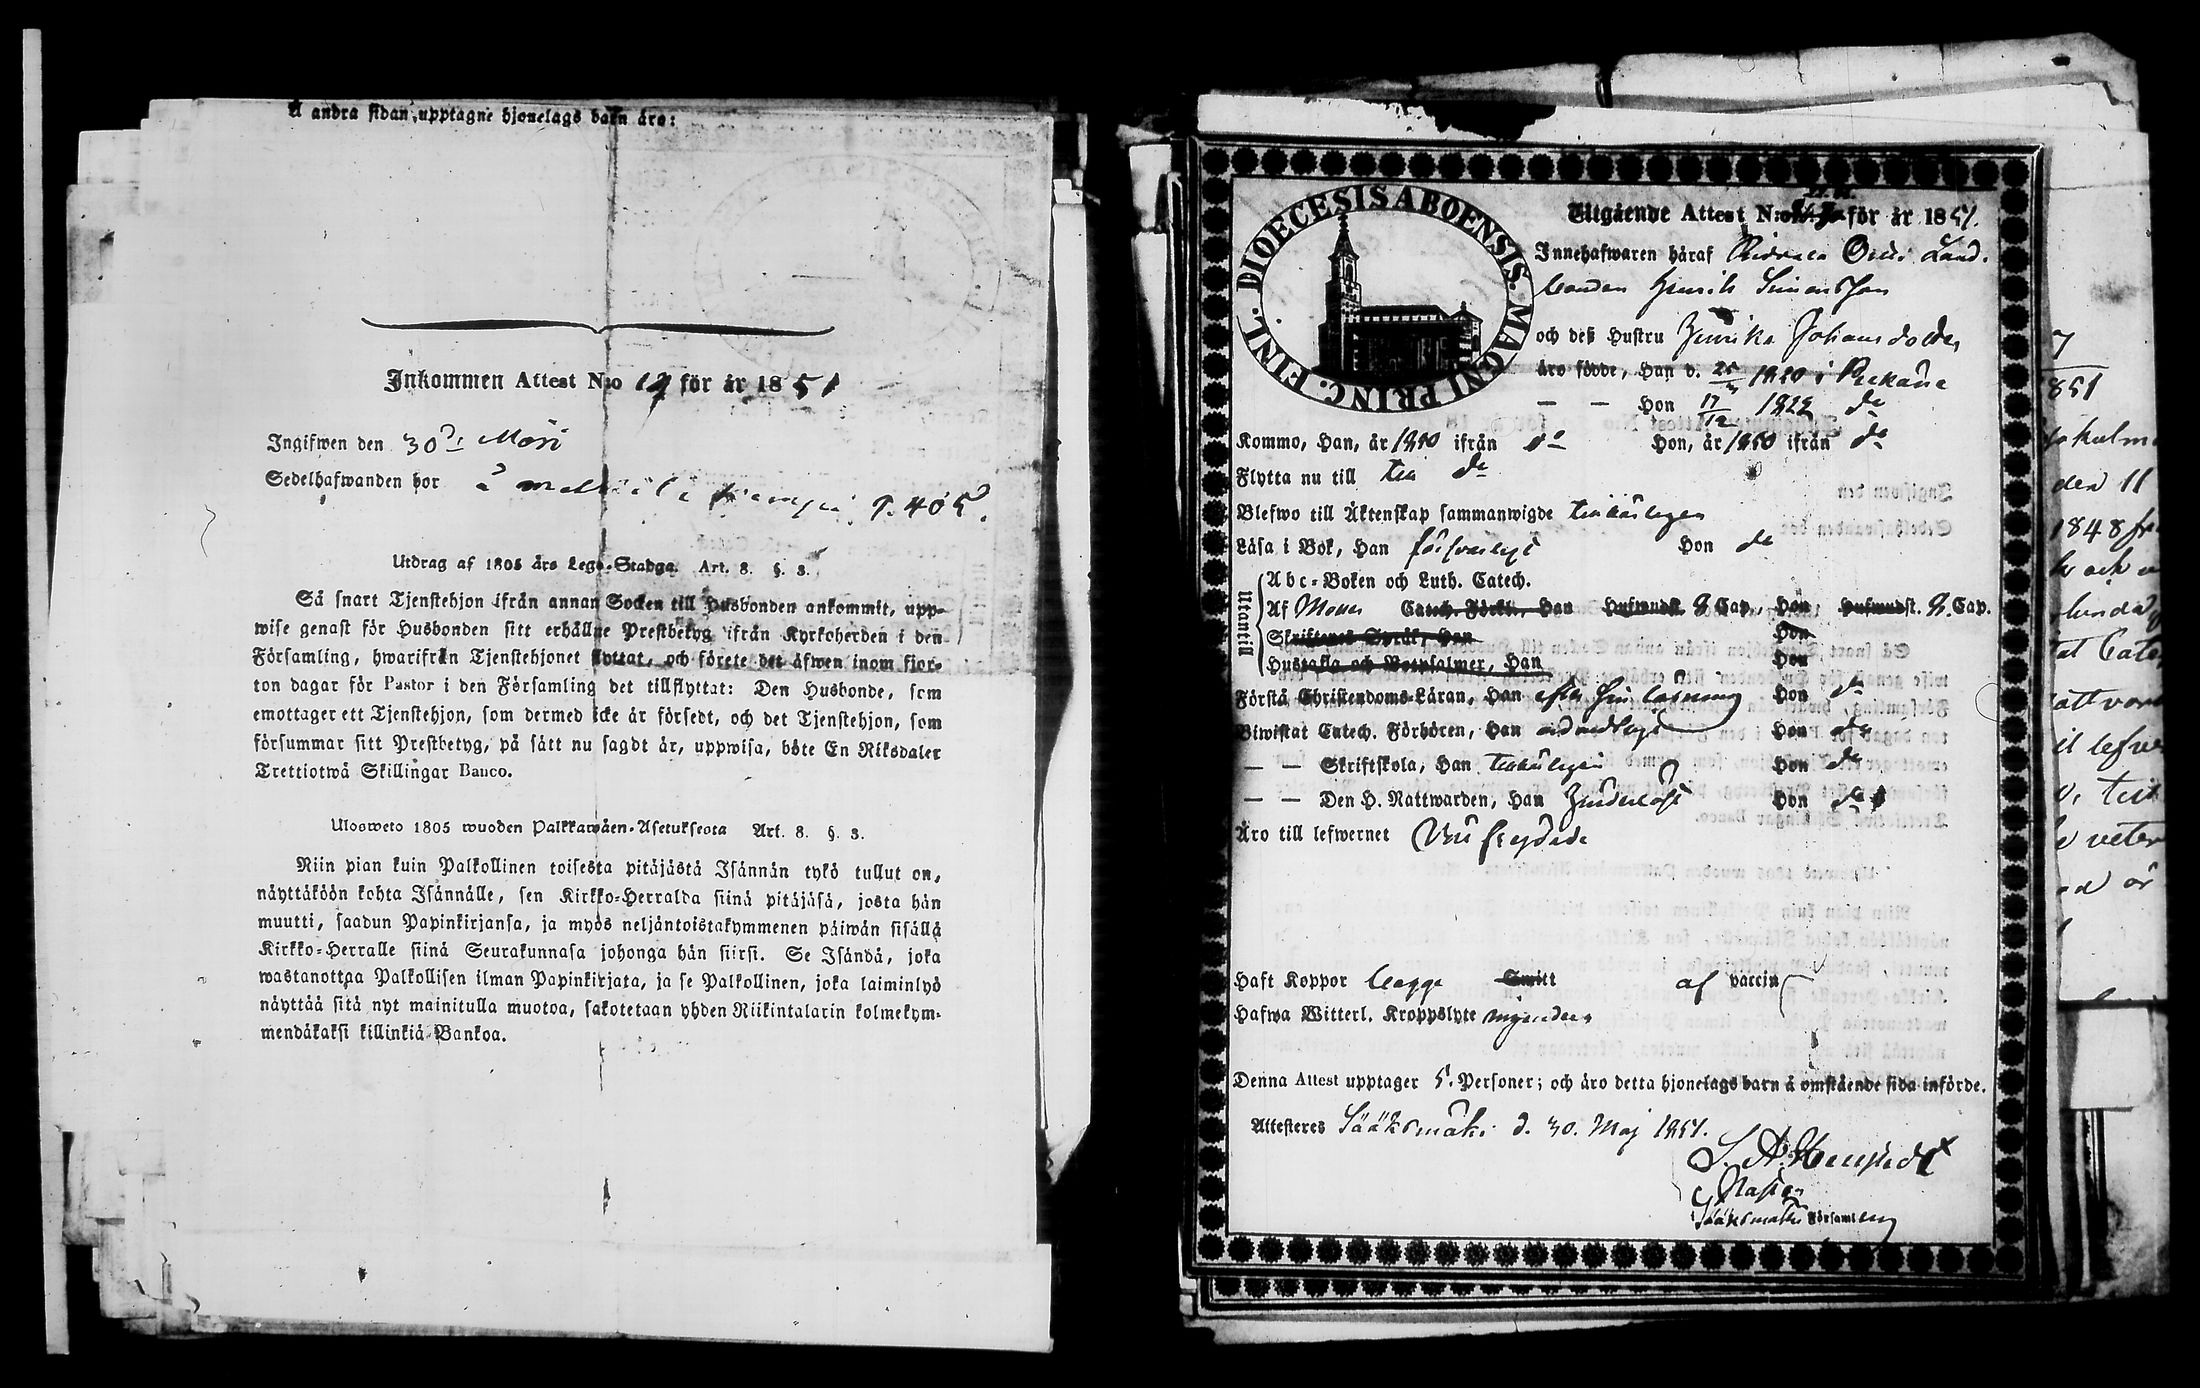 Å andra sidan upptagne hjonelags barn äro:
Inkommen Attest N:o 19 för år 1851
Ingifwen den 30 Maji
Sedelhafwanden bor å
Utdrag af 1805 års Lego-Stadga. Art. 8. §. 3.
Så snart Tjenstehjon ifrån annan Socken till Husbonden ankommit, upp-
wise genast för Husbonden sitt erhållne Prestbetyg ifrån Kyrkoherden i den
Församling, hwarifrån Tjenstehjonet flyttat, och förete det äfwen inom fjor-
ton dagar för Pastor i den Församling det tillflyttat: Den Husbonde, som
emottager ett Tjenstehjon, som dermed icke är försedt, och det Tjenstehjon, som
försummar sitt Prestbetyg, på sätt nu sagdt är, uppwisa, böte En Riksdaler
Trettiotwå Skillingar Banco.
Ulosweto 1805 wuoden Palkkawäen-Asetuksesta Art. 8. §. 3.
Niin pian kuin Palkollinen toisesta pitäjästä Isännän tykö tullut on,
näyttäköön kohta Isännälle, sen Kirkko-Herralda siinä pitäjäsä, josta hän
muutti, saadun Papinkirjansa, ja myös neljäntoistakymmenen päiwän sisällä
Kirkko-Herralle siinä Seurakunnasa johonga hän siirsi. Se Isändä, joka
wastanottaa Palkollisen ilman Papinkirjata, ja se Palkollinen, joka laiminlyö
näyttää sitä nyt mainitulla muotoa, sakotetaan yhden Riikintalarin kolmekym-
mendäkaksi killinkiä Bankoa.
DIOECESIS ABOENSIS. MAGNI PRINC. FINL.
Utgående Attest N:o för år 1851.
Innehafwaren häraf Land-
bonden Henrik Simonsson
och deß Hustru Henrika Johansdotter
äro födde, Han d. 25 1820 i Pelkäne
— — Hon 17/12 1822 do
Kommo, Han, år 1850 ifrån do Hon, år 1850 ifrån do
Flytta nu till do
Blefwo till Äktenskap sammanwigde
Läsa i Bok, Han försvarligt Hon do
Utantill
Abc-Boken och Luth. Catech.
Af Catech. Förkl., Han Hufwudst. Cap., Hon Hufwudst. Cap.
Skriftenes Språk, Han Hon
Hustafla och Botpsalmer, Han Hon
Förstå Christendoms-Läran, Han efter sin läsning Hon do
Biwistat Catech. Förhören, Han Hon do
— — Skriftskola, Han Hon do
— — Den H. Nattwarden, Han Hon do
Äro till lefwernet Väl frejdade
Haft Koppor begge Smitt af vaccin
Hafwa Witterl. Kroppslyte ingendera
Denna Attest upptager 5. Personer; och äro detta hjonelags barn å omstående sida införde.
Attesteres Sääksmäki d. 30. Maj 1851.
Pastor
i Sääksmäki Församling
7
851
den 11
1848